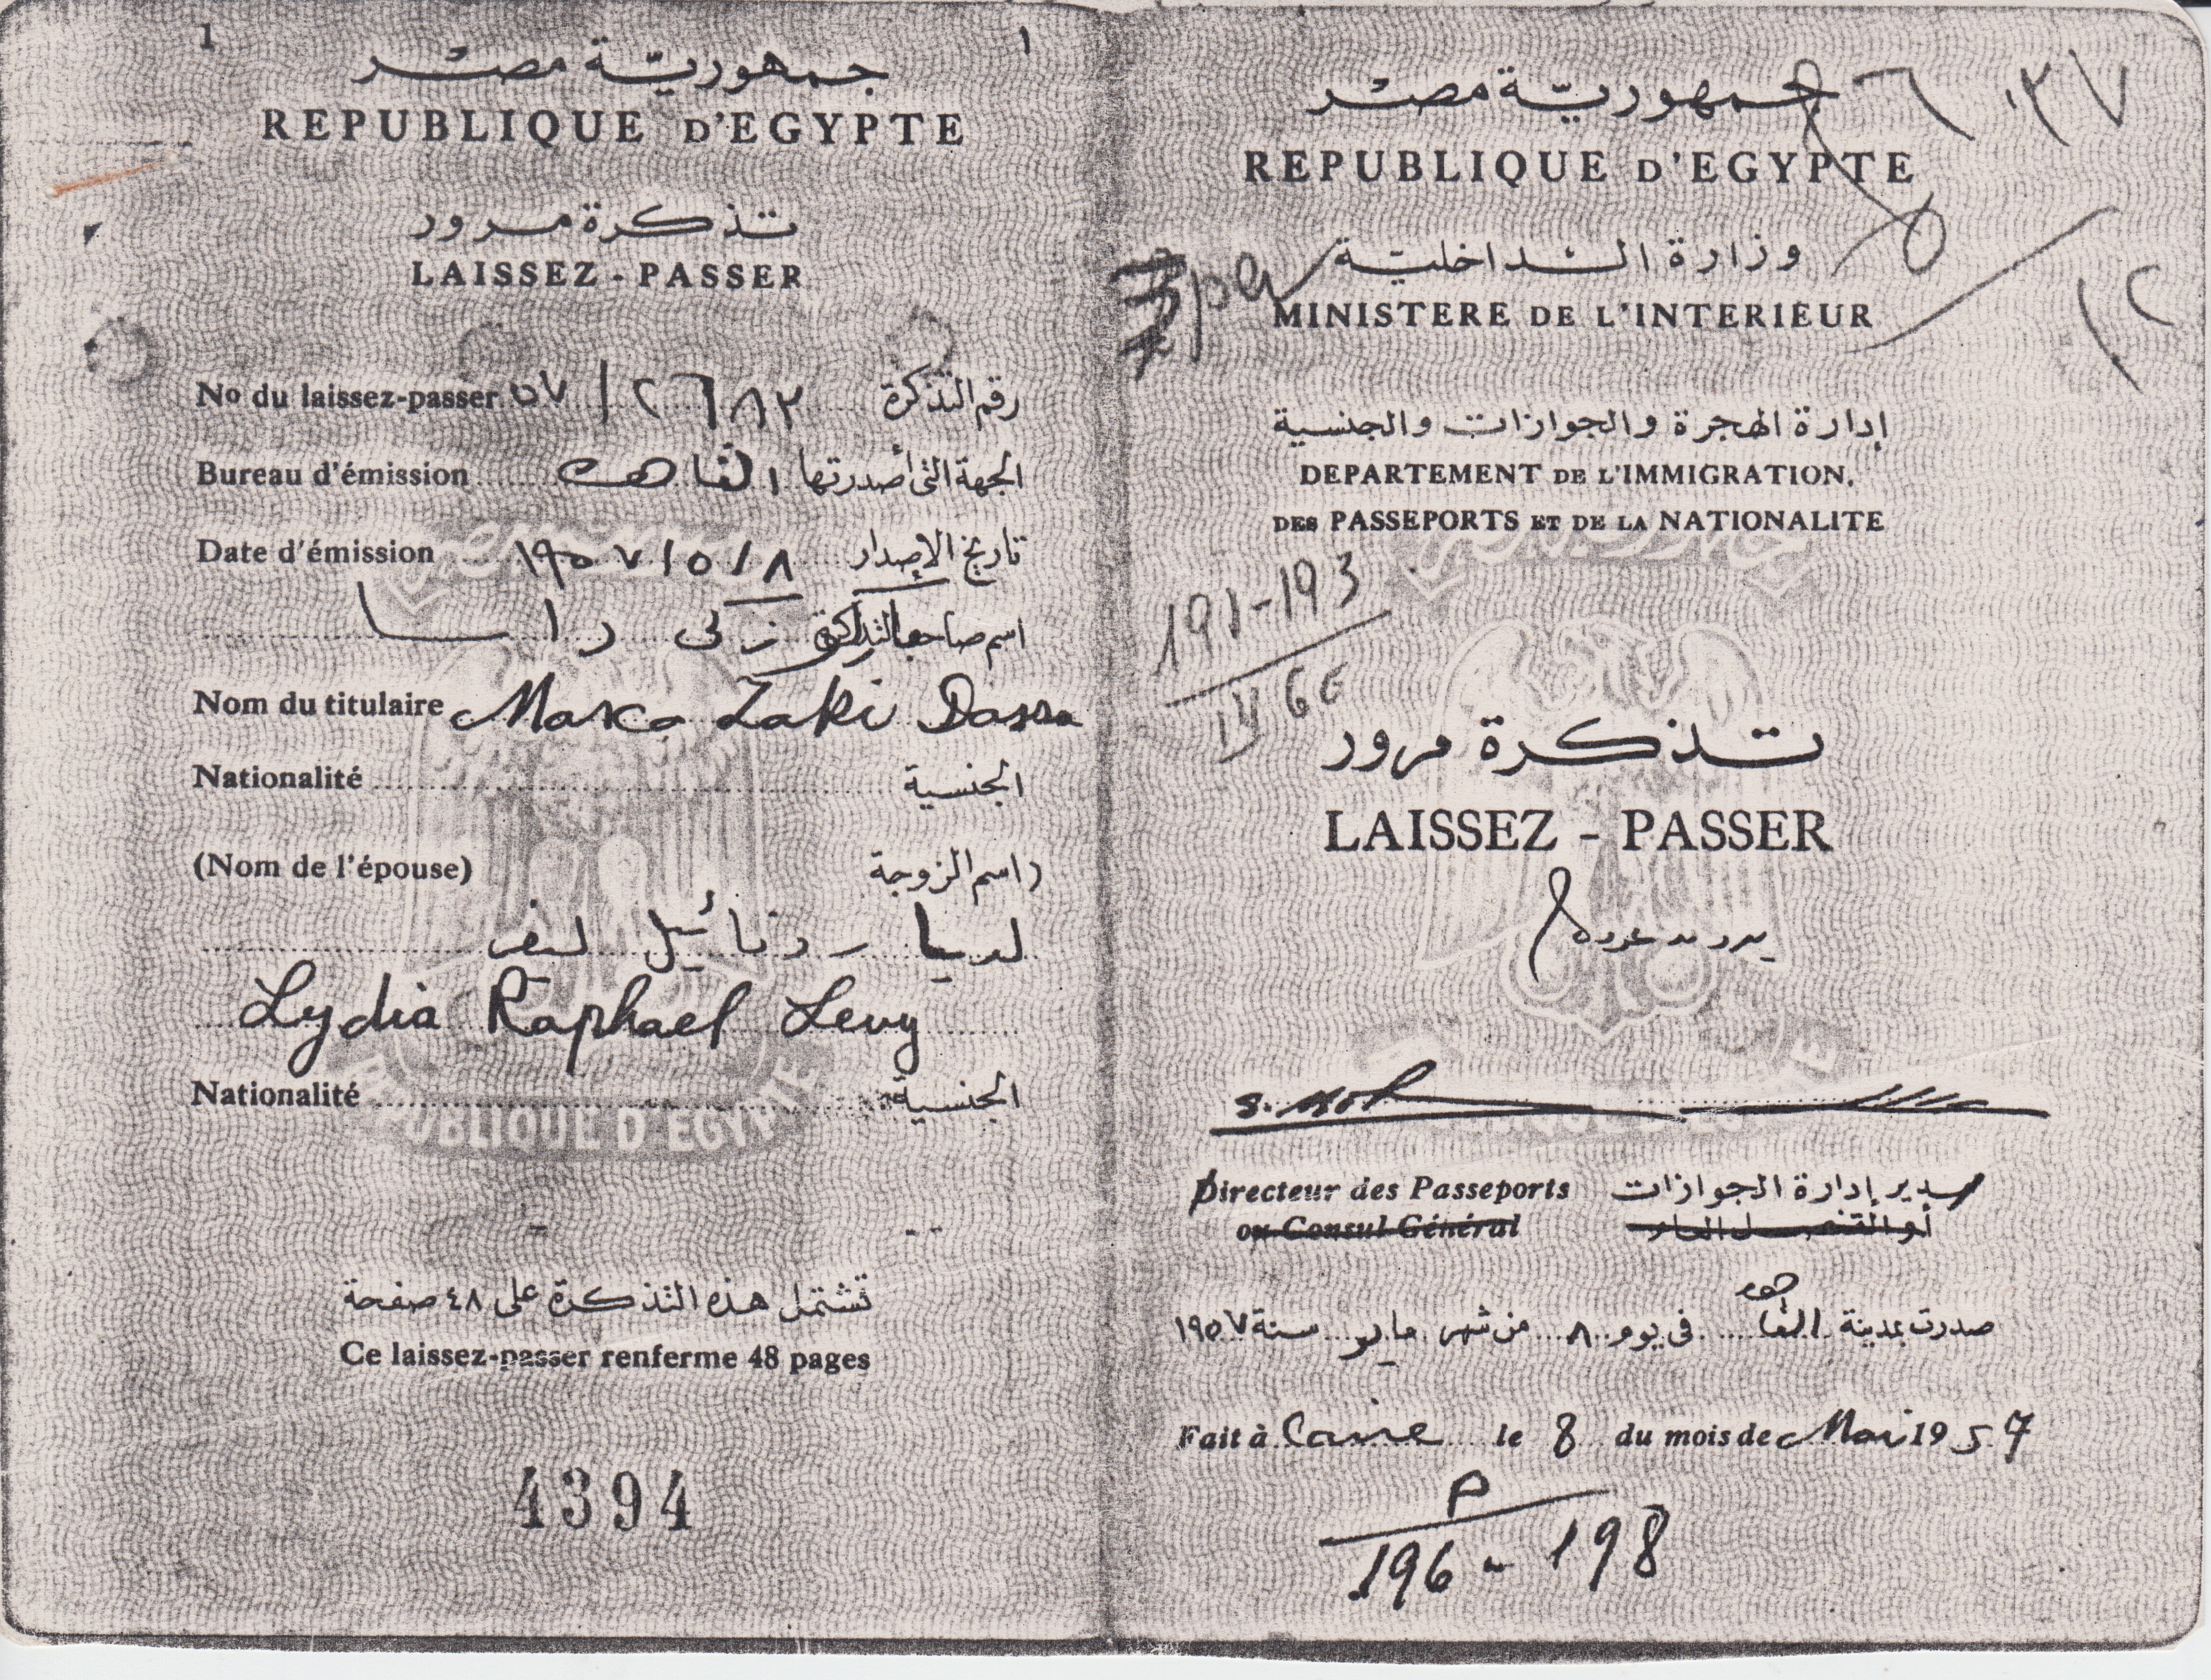 1
1
جمهورية مصر
REPUBLIQUE D'EGYPTE
تذكرة مرور
LAISSEZ-PASSER
No du laissez-passer ٥٧ / ٢٦٨٣ رقم التذكرة
Bureau d'émission القاهرة الجهة التى أصدرتها
Date d'émission ١٩٥٧/٥/٨ تاريخ الإصدار
اسم صاحب التذكرة زكى داسا
Nom du titulaire Marco Zaki Dassa
Nationalité الجنسية
(Nom de l'épouse) (اسم الزوجة
ليديا روفائيل ليفى
Lydia Raphael Levy
Nationalité الجنسية
REPUBLIQUE D'EGYPTE
تشتمل هذه التذكرة على ٤٨ صفحة
Ce laissez-passer renferme 48 pages
4394
جمهورية مصر
٦٠٣٧
REPUBLIQUE D'EGYPTE
وزارة الداخلية
MINISTERE DE L'INTERIEUR
١٢
إدارة الهجرة والجوازات والجنسية
DEPARTEMENT DE L'IMMIGRATION,
DES PASSEPORTS ET DE LA NATIONALITE
191-193
تذكرة مرور
LAISSEZ - PASSER
بدون عودة
Directeur des Passeports مدير إدارة الجوازات
ou Consul Général أو القنصل العام
صدرت بمدينة القاهرة فى يوم ٨ من شهر مايو سنة ١٩٥٧
Fait à Caire le 8 du mois de Mai 1957
P
196 - 198